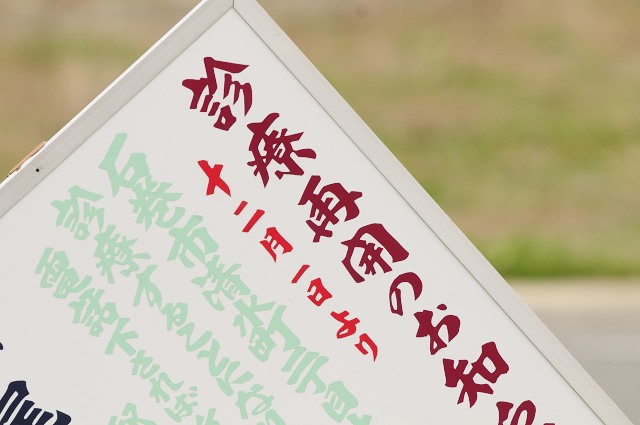 診療再開のお知ら
十二月一日より
石巻市清水町二丁目
診療することにな
電話下されば